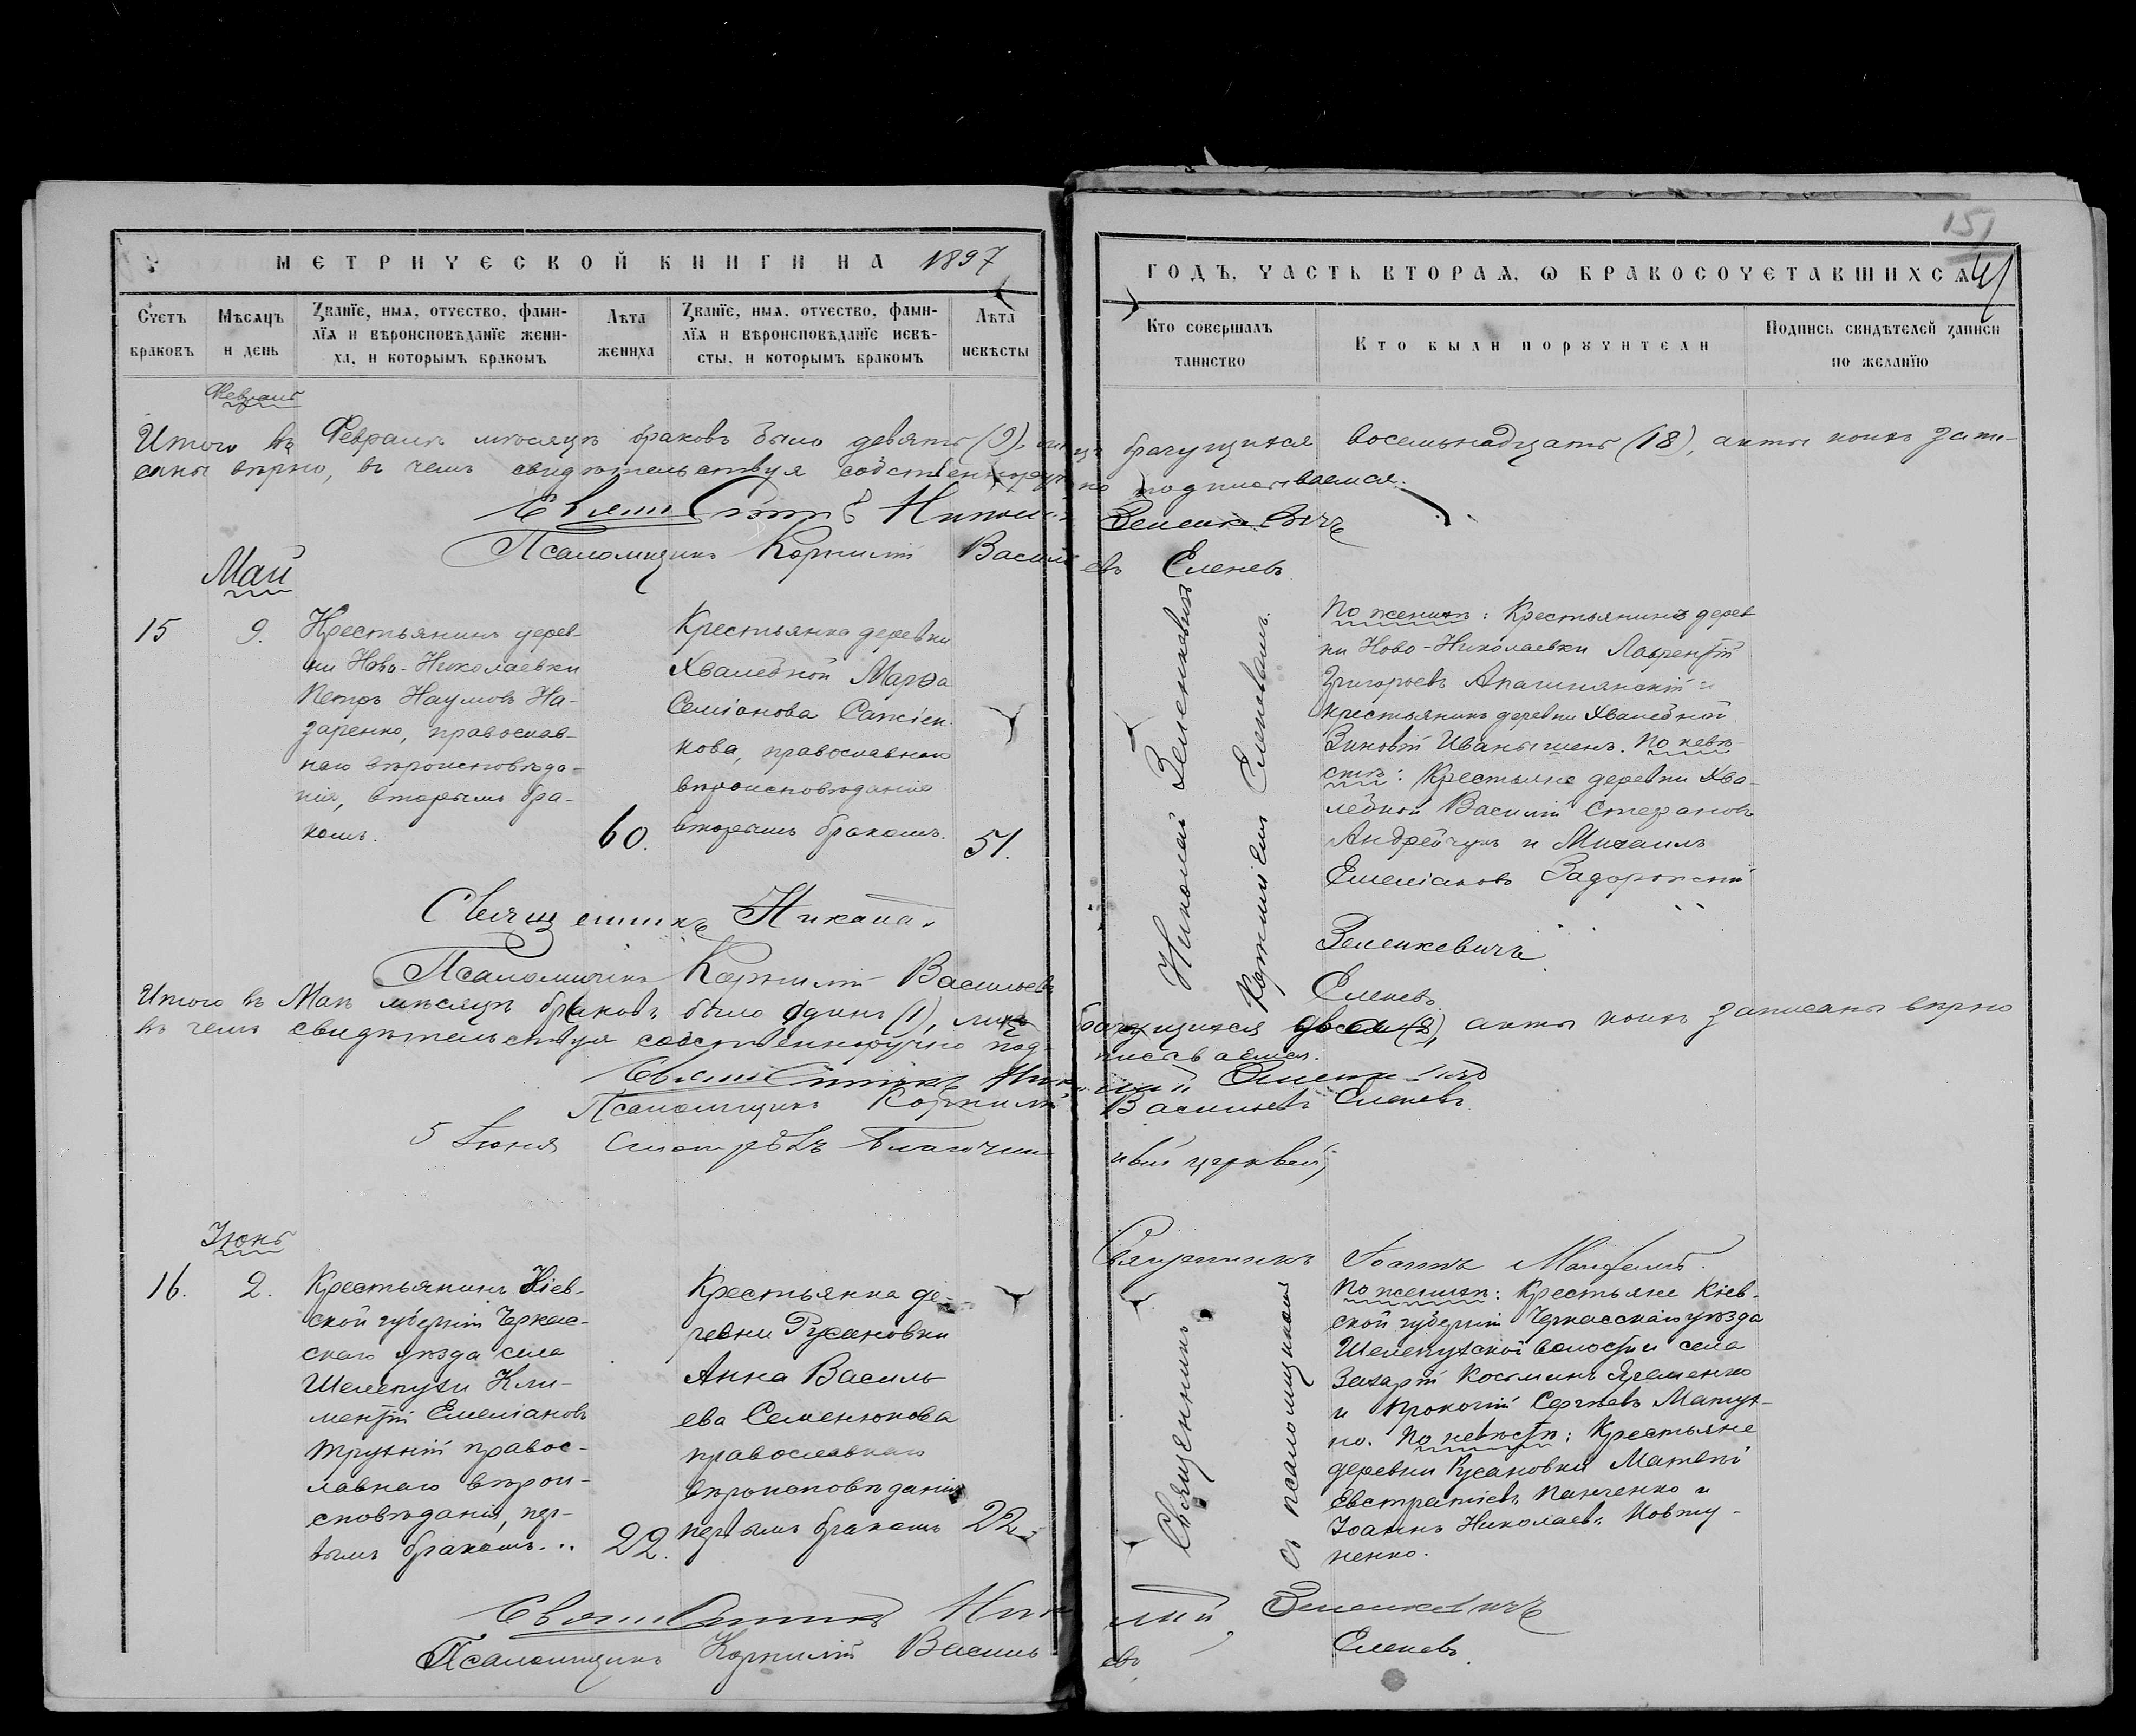 МЕТРИЧЕСКОЙ КНИГИ НА 1897
ГОДЪ, ЧАСТЬ ВТОРАЯ, Ѡ БРАКОСОЧЕТАВШИХСЯ
151
Счетъ браковъ
Мѣсяцъ и день
Званїе, имя, отчество, фами-
лїя и вѣроисповѣданїе жени-
ха, и которымъ бракомъ
Лѣта жениха
Званїе, имя, отчество, фами-
лїя и вѣроисповѣданїе невѣ-
сты, и которымъ бракомъ
Лѣта невѣсты
Кто совершалъ таинство
Кто были поручители
Подпись свидѣтелей записи по желанїю
Февраль
Итого въ Февралѣ мѣсяцѣ браковъ было девять (9), лицъ брачущихся восемьнадцать (18), акты коихъ запи-
саны вѣрно, въ чемъ свидѣтельствуя собственноручно подписываемся.
Священникъ Николай Зеленкевичъ
Псаломщикъ Корнилій Васильевъ Еленевъ.
Май
15
9.
Крестьянинъ дерев-
ни Ново-Николаевки
Петръ Наумовъ На-
заренко, православ-
наго вѣроисповѣда-
нія, вторымъ бра-
комъ.
60.
Крестьянка деревни
Хвалебной Марѳа
Семіонова
кова, православнаго
вѣроисповѣданія
вторымъ бракомъ.
51.
Николай Зеленкевичъ
Корниліемъ Еленевымъ.
По женихѣ: Крестьянинъ дерев
ни Ново-Николаевки Лаврентій
Григорьевъ и
крестьянинъ деревни Хвалебной
Зиновій Иванишенъ. По невѣ-
стѣ: Крестьяне деревни Хва-
лебной Василій Стефановъ
Андрейчукъ и Михаилъ
Емеліановъ Задорожный
Священникъ Николай Зеленкевичъ
Псаломщикъ Корнилій Васильевъ Еленевъ
Итого въ Маѣ мѣсяцѣ браковъ было одинъ (1), лицъ брачущихся двое (2), акты коихъ записаны вѣрно
въ чемъ свидѣтельствуя собственноручно подписываемся.
Священникъ Николай Зеленкевичъ
Псаломщикъ Корнилій Васильевъ Еленевъ
5 Іюня смотрѣлъ Благочинный церквей,
Священникъ Іоаннъ
Іюнь
16.
2.
Крестьянинъ Кіев-
ской губерніи Черкас-
скаго уѣзда села
Шелепухи Кли-
ментій Емеліановъ
Трухній правос-
лавнаго вѣрои-
сповѣданія, пер-
вымъ бракомъ.
22.
Крестьянка де-
ревни Русановки
Анна Василь-
ева Семенюкова
православнаго
вѣроисповѣданія
первымъ бракомъ
22.
Священникъ
съ псаломщикомъ
По женихѣ: Крестьяне Кіев-
ской губерніи Черкасскаго уѣзда
Шелепухской волости и села
Захарій Косьминъ Яременко
и Прокопій Сергѣевъ Матух-
но. По невѣстѣ: Крестьяне
деревни Русановки Матвѣй
Евстратіевъ Панченко и
Іоаннъ Николаевъ Ковту-
ненко.
Священникъ Николай Зеленкевичъ
Псаломщикъ Корнилій Васильевъ Еленевъ.